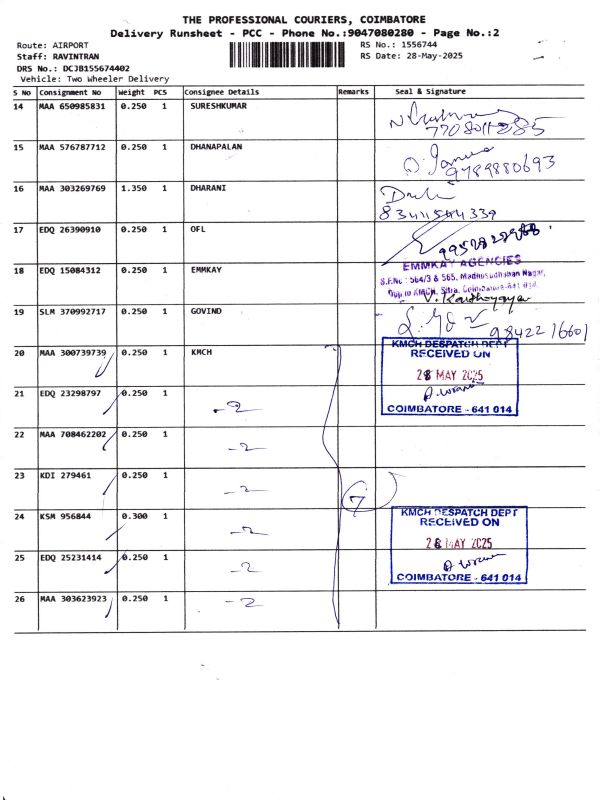 THE PROFESSIONAL COURIERS, COIMBATORE
Delivery Runsheet - PCC - Phone No.:9047080280 - Page No.:2
Route: AIRPORT RS No.: 1556744
Staff: RAVINTRAN RS Date: 28-May-2025
DRS No.: DCJB155674402
Vehicle: Two Wheeler Delivery
S No Consignment No Weight PCS Consignee Details Remarks Seal & Signature
14 MAA 650985831 0.250 1 SURESHKUMAR
15 MAA 576787712 0.250 1 DHANAPALAN
9789880693
16 MAA 303269769 1.350 1 DHARANI
17 EDQ 26390910 0.250 1 OFL
18 EDQ 15084312 0.250 1 EMMKAY EMMKAY AGENCIES
S.F.No : 564/3 & 565, Madhusudhanan Nagar,
Opp to KMCH, Sitra, Coimbatore-641 014.
19 SLM 370992717 0.250 1 GOVIND
9842216601
20 MAA 300739739 0.250 1 KMCH KMCH DESPATCH DEPT
RECEIVED ON
28 MAY 2025
COIMBATORE - 641 014
21 EDQ 23298797 0.250 1 - 2 -
22 MAA 708462202 0.250 1 - 2 -
23 KDI 279461 0.250 1 - 2 -
7
24 KSM 956844 0.300 1 - 2 - KMCH DESPATCH DEPT
RECEIVED ON
28 MAY 2025
COIMBATORE - 641 014
25 EDQ 25231414 0.250 1 - 2 -
26 MAA 303623923 0.250 1 - 2 -